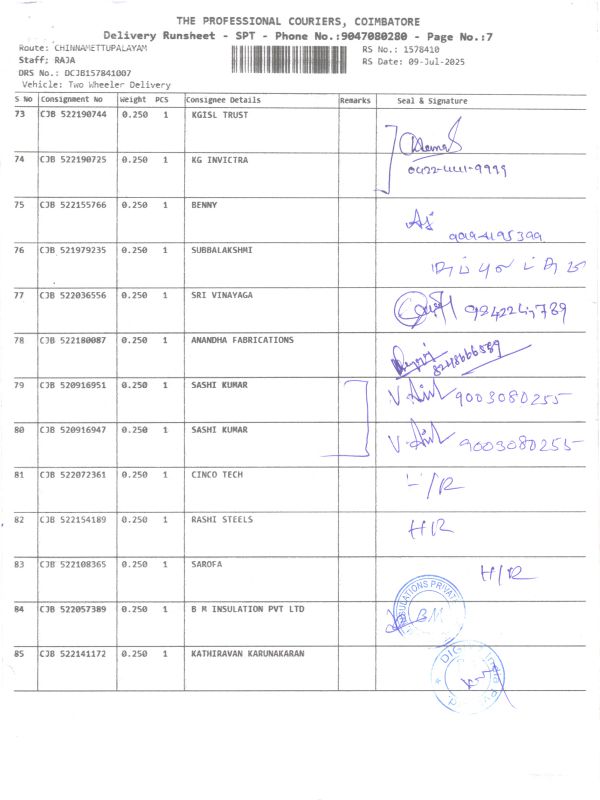 THE PROFESSIONAL COURIERS, COIMBATORE
Delivery Runsheet - SPT - Phone No.:9047080280 - Page No.:7
Route: CHINNAMETTUPALAYAM RS No.: 1578410
Staff; RAJA RS Date: 09-Jul-2025
DRS No.: DCJB157841007
Vehicle: Two Wheeler Delivery
S No Consignment No Weight PCS Consignee Details Remarks Seal & Signature
73 CJB 522190744 0.250 1 KGISL TRUST
74 CJB 522190725 0.250 1 KG INVICTRA 0422-4441-9999
75 CJB 522155766 0.250 1 BENNY
76 CJB 521979235 0.250 1 SUBBALAKSHMI
77 CJB 522036556 0.250 1 SRI VINAYAGA
78 CJB 522180087 0.250 1 ANANDHA FABRICATIONS 8248666589
79 CJB 520916951 0.250 1 SASHI KUMAR 9003080255
80 CJB 520916947 0.250 1 SASHI KUMAR 9003080255
81 CJB 522072361 0.250 1 CINCO TECH H/R
82 CJB 522154189 0.250 1 RASHI STEELS H/R
83 CJB 522108365 0.250 1 SAROFA H/R
84 CJB 522057389 0.250 1 B M INSULATION PVT LTD BM
85 CJB 522141172 0.250 1 KATHIRAVAN KARUNAKARAN